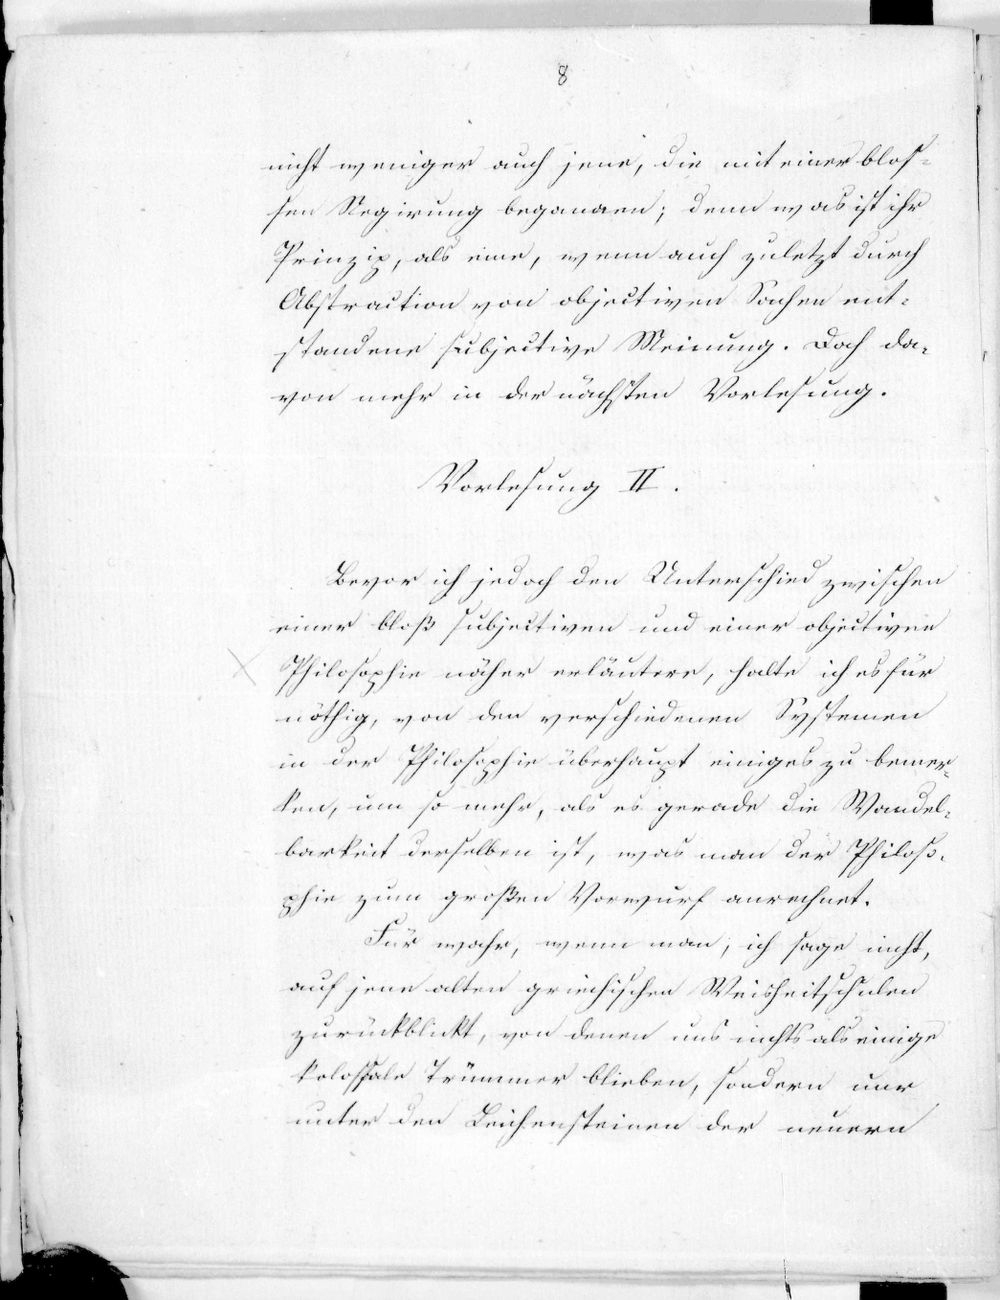 8
nicht weniger auch jene, die mit einer blos-
sen Negirung begannen; denn was ist ihr
Prinzip, als eine, wenn auch zuletzt durch
Abstraction von objectiven Sachen ent-
standene subjective Meinung. Doch da-
von mehr in der nächsten Vorlesung.
Vorlesung II.
Bevor ich jedoch den Unterschied zwischen
einer bloß subjectiven und einer objectiven
Philosophie näher erläutere, halte ich es für
nöthig, von den verschiedenen Systemen
in der Philosophie überhaupt einiges zu bemer-
ken, um so mehr, als es gerade die Wandel-
barkeit derselben ist, was man der Philoso-
phie zum großen Vorwurf anrechnet.
Für wahr, wenn man, ich sage nicht,
auf jene alten griechischen Weisheitschulen
zurückblickt, von denen uns nichts als einige
kolossale Trümmer blieben, sondern nur
unter den Leichensteinen der neuern